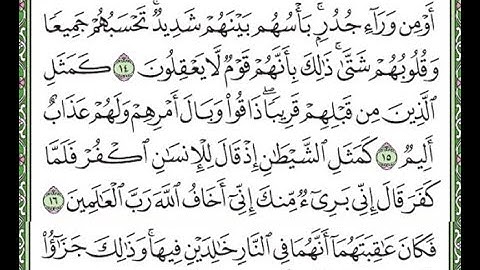 أَوْ مِن وَرَآءِ جُدُرٍۭ ۚ بَأْسُهُم بَيْنَهُمْ شَدِيدٌ ۚ تَحْسَبُهُمْ جَمِيعًا
وَقُلُوبُهُمْ شَتَّىٰ ۚ ذَٰلِكَ بِأَنَّهُمْ قَوْمٌ لَّا يَعْقِلُونَ ١٤ كَمَثَلِ
ٱلَّذِينَ مِن قَبْلِهِمْ قَرِيبًا ۖ ذَاقُوا۟ وَبَالَ أَمْرِهِمْ وَلَهُمْ عَذَابٌ
أَلِيمٌ ١٥ كَمَثَلِ ٱلشَّيْطَٰنِ إِذْ قَالَ لِلْإِنسَٰنِ ٱكْفُرْ فَلَمَّا
كَفَرَ قَالَ إِنِّى بَرِىٓءٌ مِّنكَ إِنِّىٓ أَخَافُ ٱللَّهَ رَبَّ ٱلْعَٰلَمِينَ ١٦
فَكَانَ عَٰقِبَتَهُمَآ أَنَّهُمَا فِى ٱلنَّارِ خَٰلِدَيْنِ فِيهَا ۚ وَذَٰلِكَ جَزَٰٓؤُا۟